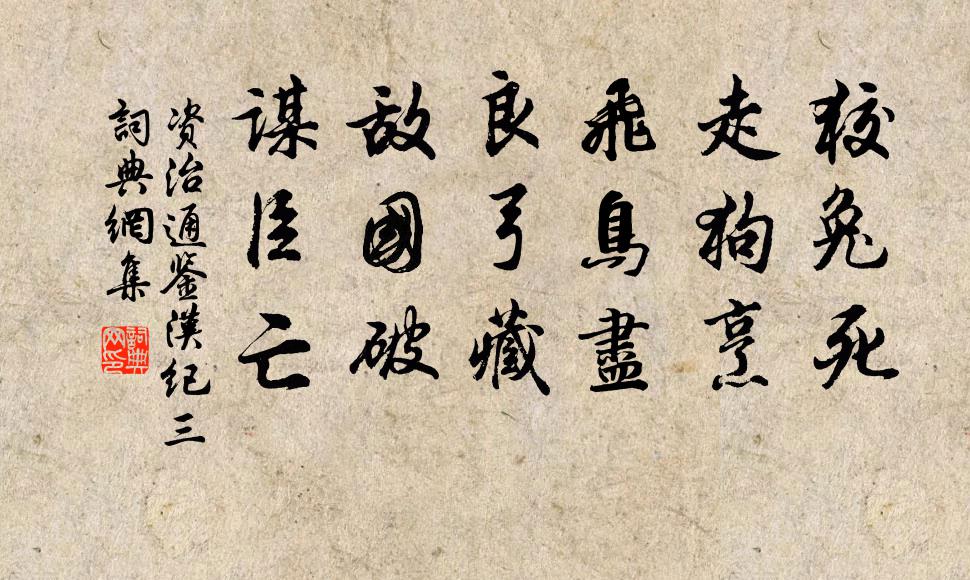 狡兔死
走狗烹
飛鳥盡
良弓藏
敌國破
謀臣亡
资治通鉴漢纪三
詞典網集
詞典网印